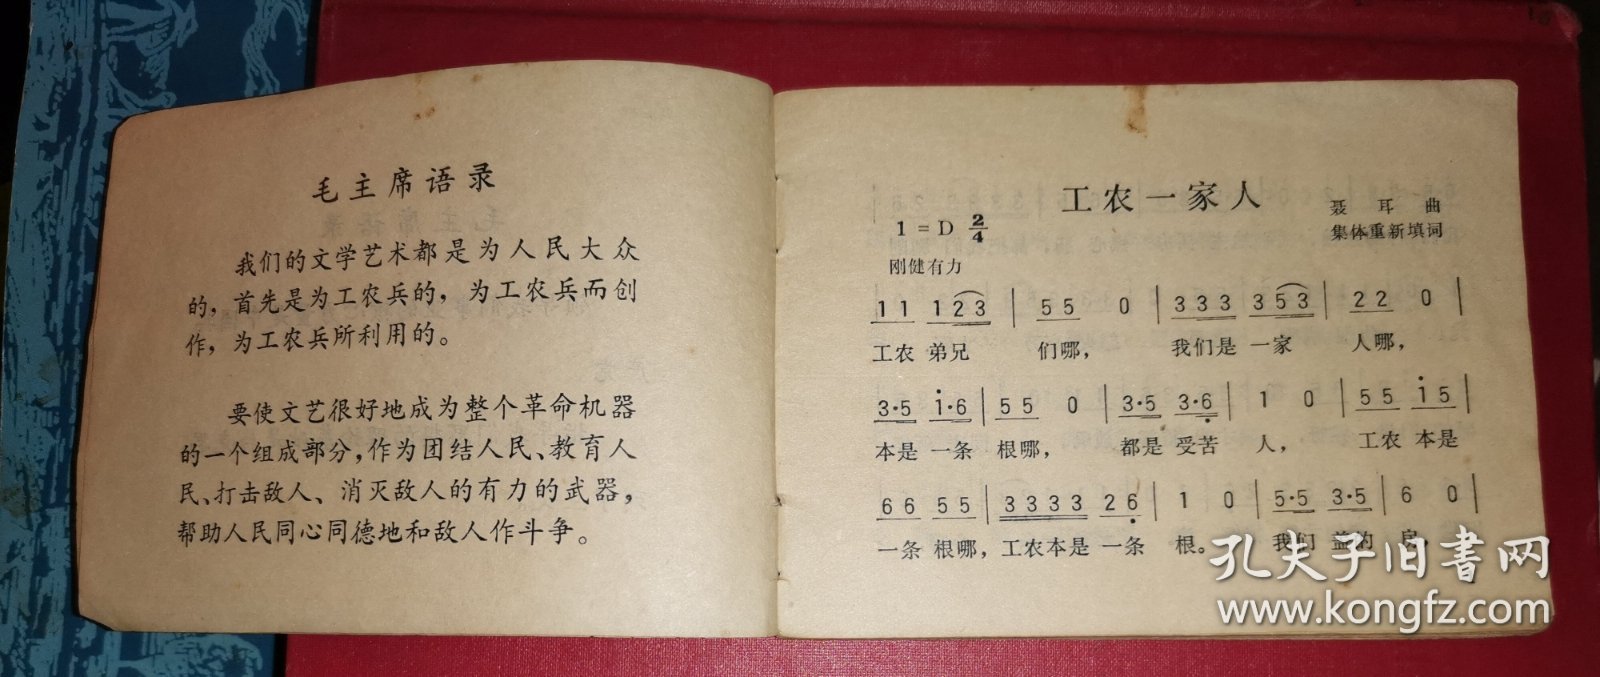 毛主席语录
我们的文学艺术都是为人民大众
的，首先是为工农兵的，为工农兵而创
作，为工农兵所利用的。
要使文艺很好地成为整个革命机器
的一个组成部分，作为团结人民、教育人
民、打击敌人、消灭敌人的有力的武器，
帮助人民同心同德地和敌人作斗争。
工农一家人
1 = D 2/4
聂耳 曲
集体重新填词
刚健有力
1 1 1 2 3 | 5 5 0 | 3 3 3 3 5 3 | 2 2 0 |
工农 弟兄 们哪， 我们是 一家 人哪，
3·5 i·6 | 5 5 0 | 3·5 3·6 | 1 0 | 5 5 i 5 |
本是 一条 根哪， 都是 受苦 人， 工农 本是
6 6 5 5 | 3 3 3 3 2 6 | 1 0 | 5·5 3·5 | 6 0 |
一条 根哪，工农本是 一条 根。 我们 盖的 房，
孔夫子旧书网
www.kongfz.com